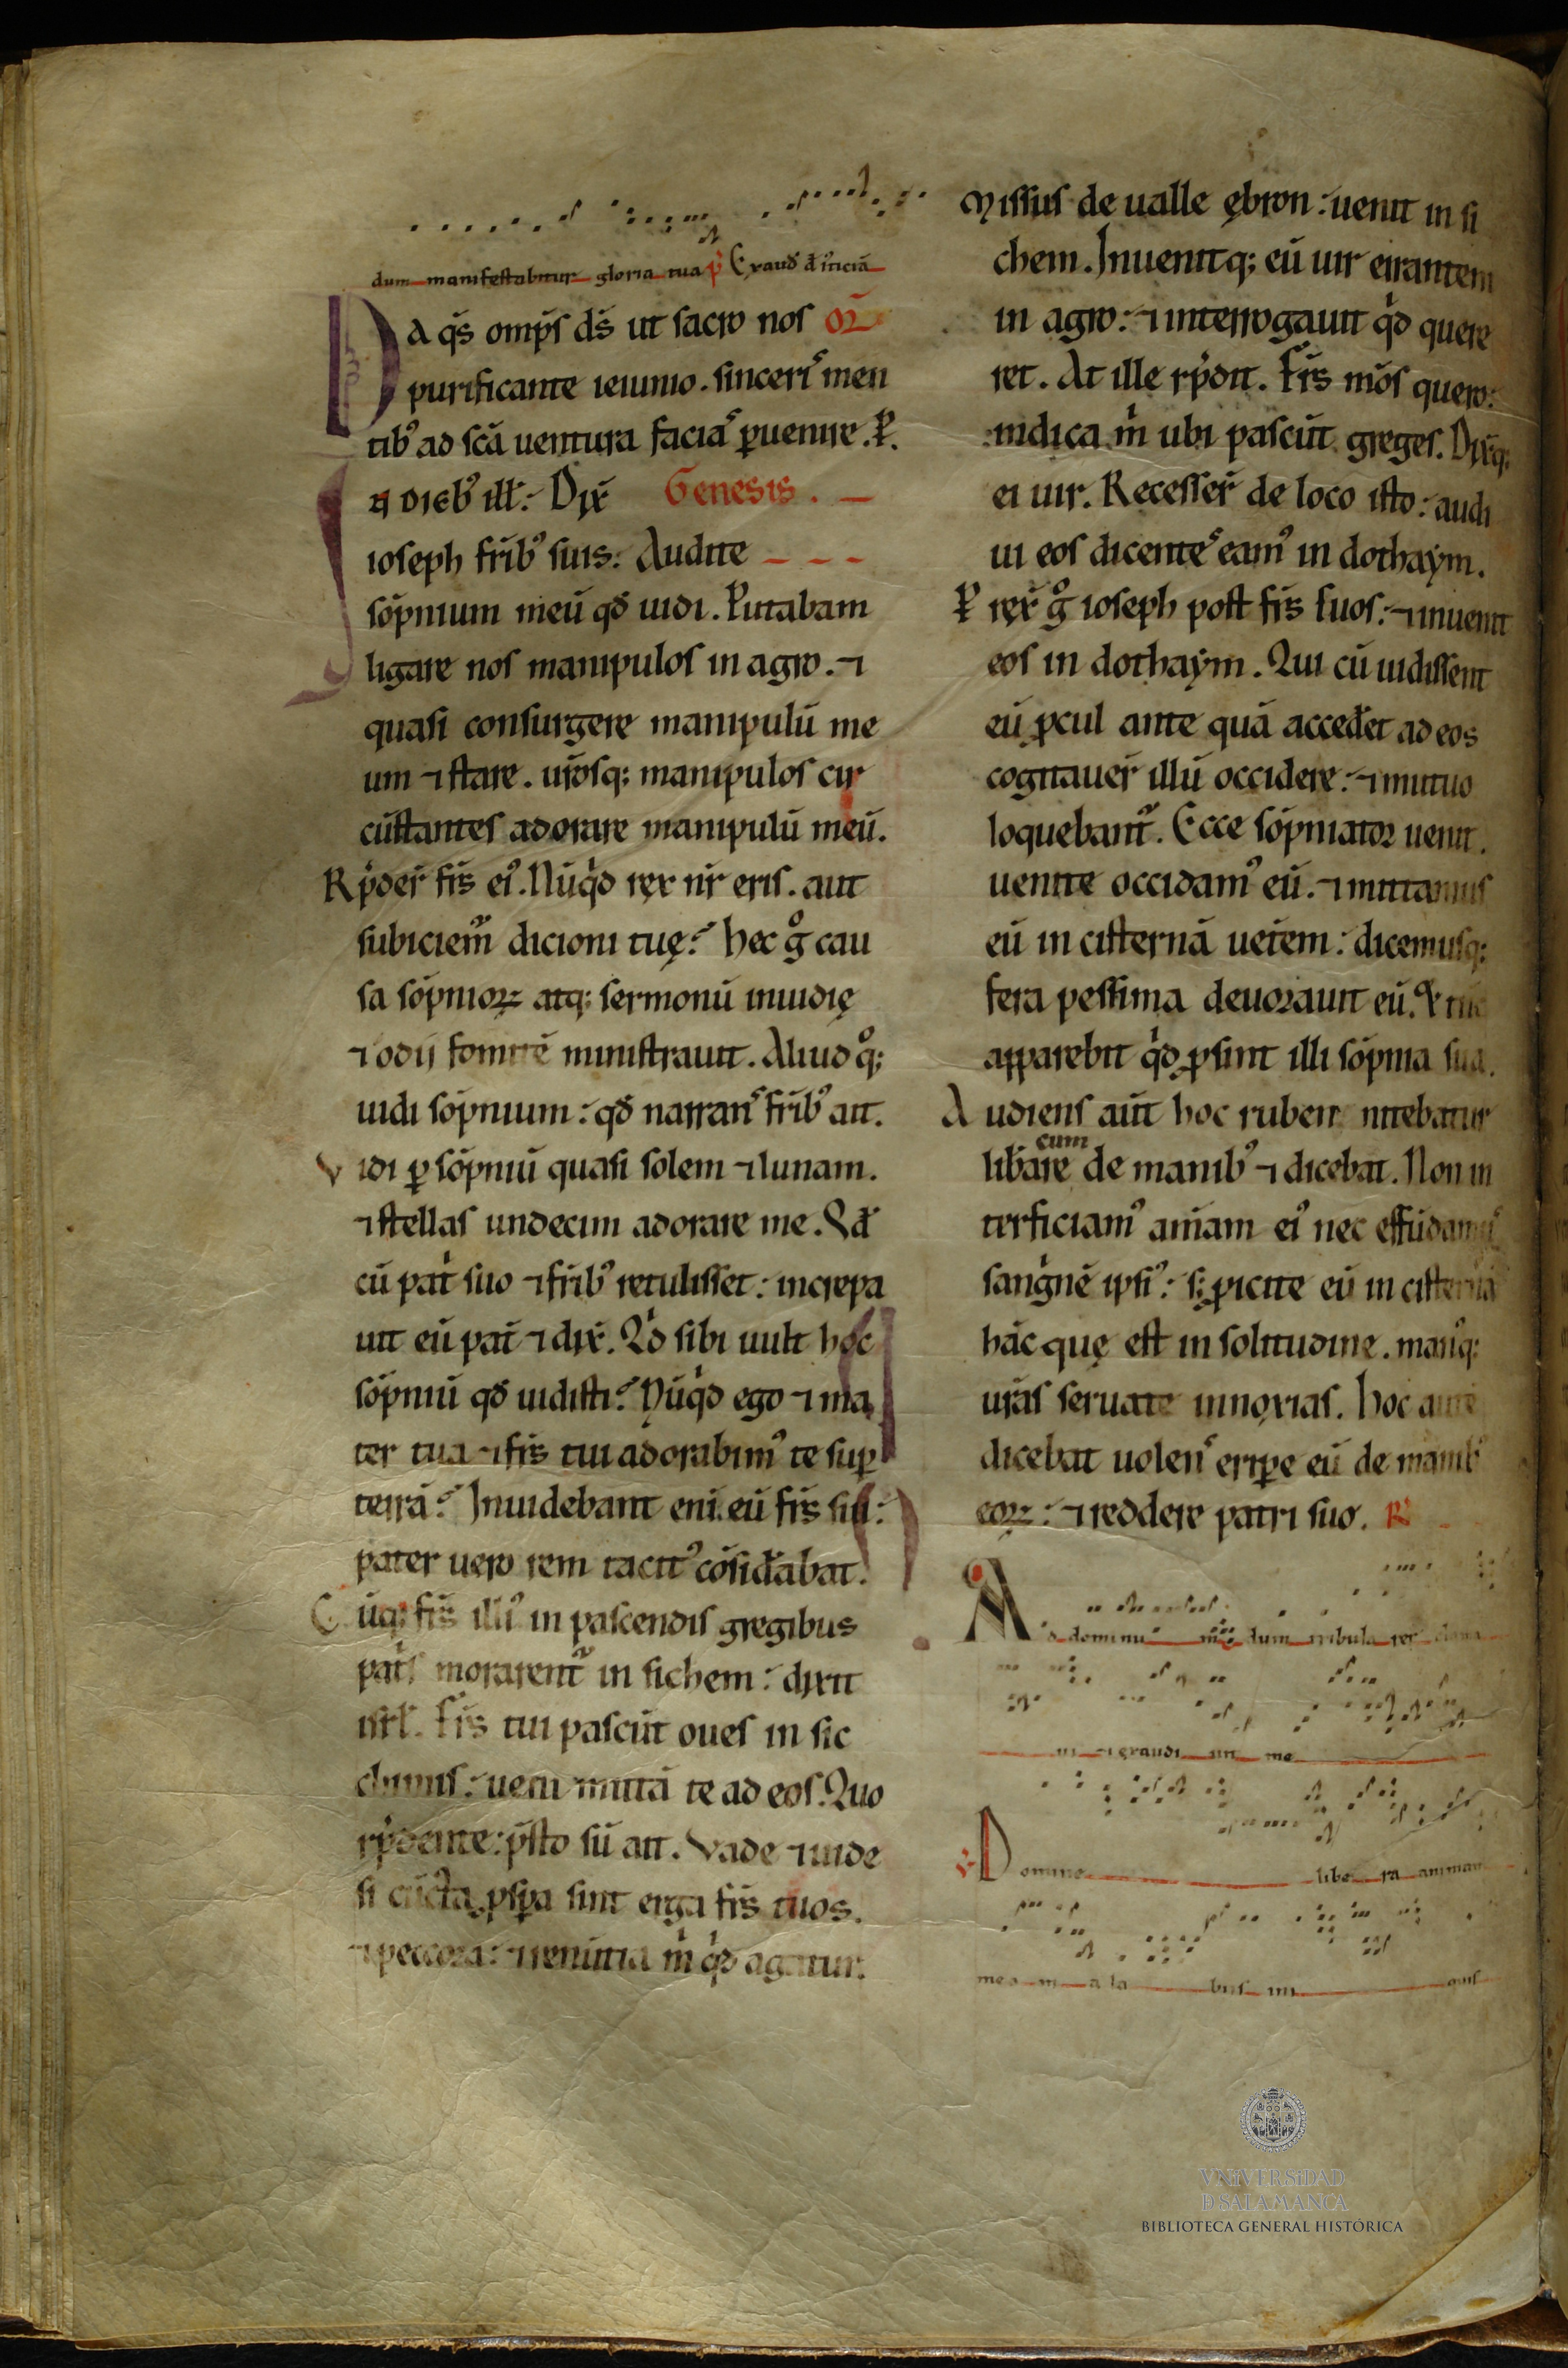 dum manifestabitur gloria tua p̄ Exaud̄ d̄ iticiā
DA qs̄ omp̄s ds̄ ut sacro nos oꝝ
purificante ieiunio. sinceris᷒ men
tib᷒ ad scā uentura facias᷒ ꝑuenire. P.
IN dieb᷒ ill̄: Dix̄ Genesis.
ioseph frīb᷒ suis: Audite
sōpnium meū qd̄ uidi. Putabam
ligare nos manipulos in agro. ⁊
quasi consurgere manipulū me
um ⁊ stare. ur̄osq; manipulos cir
cūstantes adorare manipulū meū.
Rp̄der̄ fr̄s ei᷒. Nūqͥd rex nr̄ eris. aut
subiciem̄ dicioni tuę? hec gͦ cau
sa sōpnioꝝ atq; sermonū inuidię
⁊ odii fomitē ministrauit. Aliud qͦ;
uidi sōpnium: qd̄ narrans᷒ frīb᷒ ait.
Vidi ꝑ sōpniū quasi solem ⁊ lunam.
⁊ stellas undecim adorare me. Qd̄
cū patͥ suo ⁊ frīb᷒ retulisset: increpa
uit eū pat̄ ⁊ dix̄. Qͥd sibi uult hoc
sōpniū qd̄ uidisti? Nūqͥd ego ⁊ ma
ter tua ⁊ fr̄s tui adorabim᷒ te suꝑ
terrā? Inuidebant eni eū fr̄s sui:
pater uero rem tacit᷒ cōsid̄abat.
Cūq; fr̄s illi᷒ in pascendis gregibus
patͥs morarent̄ in sichem: dixit
isrl̄. Fr̄s tui pascūt oues in sic
chimis: ueni mittā te ad eos. Quo
rp̄dente: p̄sto sū ait. Vade ⁊ uide
si cūcta ꝓsꝑa sint erga fr̄s tuos.
⁊ peccora: ⁊ renūtia mͥ qͥd agatur.
Missus de ualle ębron: uenit in si
chem. Inuenitq; eū uir errantem
in agro: ⁊ interrogauit qͥd quere
ret. At ille rp̄dit. Fr̄s mōs quero:
indica mͥ ubi pascūt greges. Dix̄q;
ei uir. Recesser̄ de loco isto: audi
ui eos dicentes᷒ eam᷒ in dothaym.
Prex̄ gͦ ioseph post fr̄s suos: ⁊ inuenit
eos in dothaym. Qui cū uidissent
eū ꝓcul ante quā acced̄et ad eos
cogitauer̄ illū occidere: ⁊ mutuo
loquebant̄. Ecce sōpniatoꝛ uenit.
uenite occidam᷒ eū. ⁊ mittamus
eū in cisternā uetēm: dicemusq;
fera pessima deuorauit eū. & tūc
apparebit qͥd ꝓsint illi sōpnia sua.
Audiens aūt hoc ruben nitebatur
eum
lib̄are de manib᷒ ⁊ dicebat. Non in
terficiam᷒ aniam ei᷒ nec effūdam᷒
sangͥnē ipsi᷒: s; ꝓicite eū in cisternā
hāc quę est in solitudine. man᷒q;
ur̄as seruate innoxias. hoc autē
dicebat uolens᷒ eriꝑe eū de manib᷒
eoꝝ: ⁊ reddere patri suo. R̄
Ad dominu m̄ dum tribula rer clama
ui ⁊ exaudi uit me
Domine libe ra animam
me a m a la bus ini quis
VNiVERSiDAD
D SALAMANCA
BIBLIOTECA GENERAL HISTÓRICA